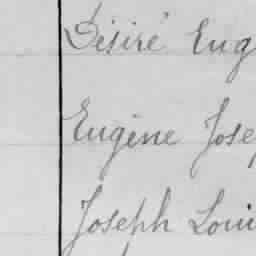 Désiré Eug
Eugène Jose
Joseph Loui